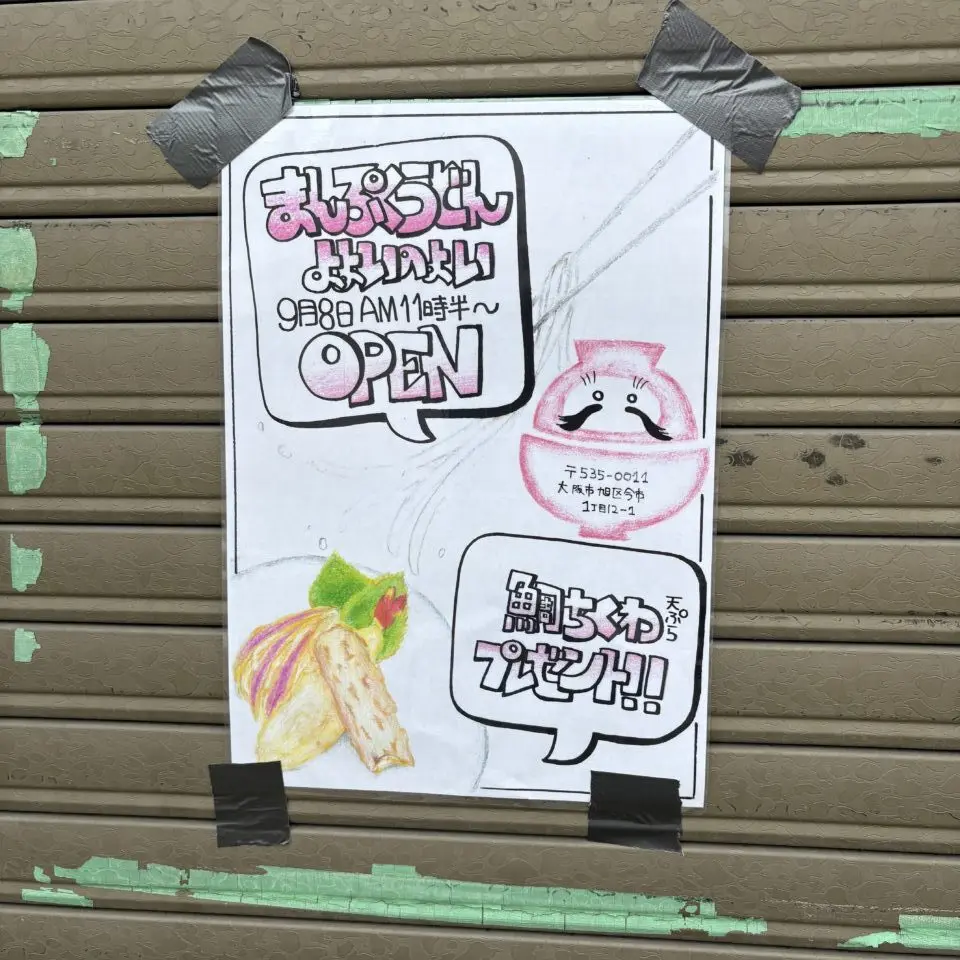 まんぷくうどん
よいのよい
9月8日 AM11時半〜
OPEN
〒535-0011
大阪市旭区今市
1丁目12-1
鯛ちくわ天ぷら
プレゼント!!